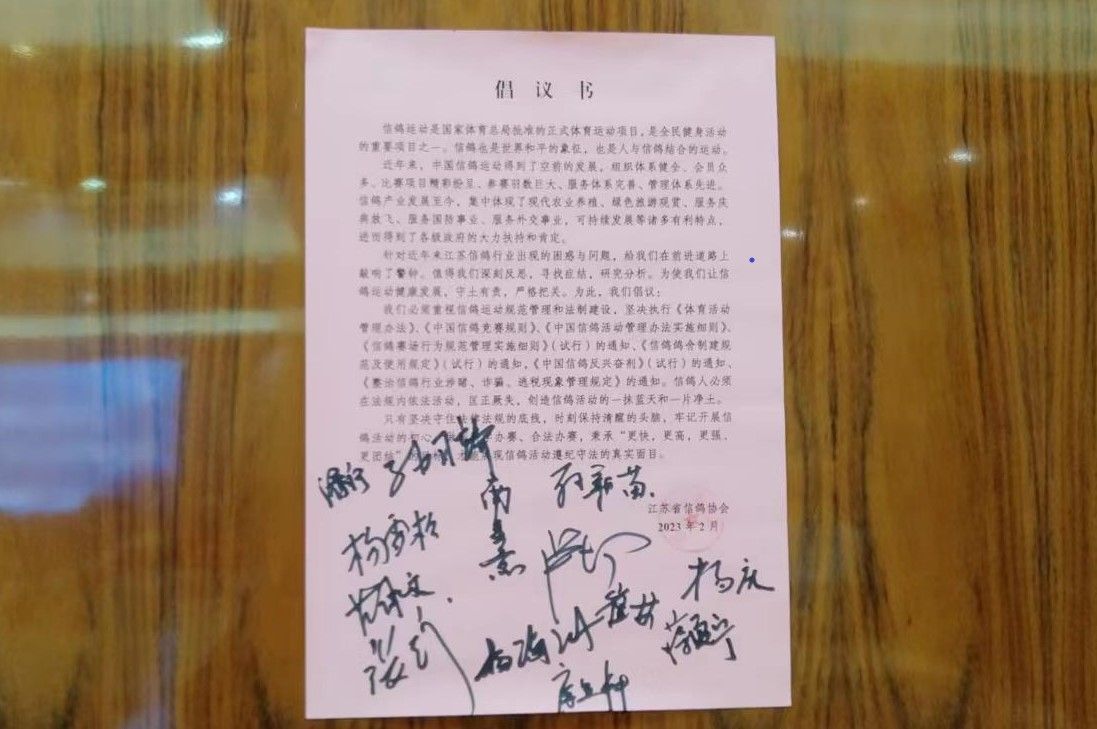 倡 议 书
信鸽运动是国家体育总局批准的正式体育运动项目，是全民健身活动
的重要项目之一。信鸽也是世界和平的象征，也是人与信鸽结合的运动。
近年来，中国信鸽运动得到了空前的发展，组织体系健全、会员众
多、比赛项目精彩纷呈、参赛羽数巨大、服务体系完善、管理体系先进。
信鸽产业发展至今，集中体现了现代农业养殖、绿色旅游观赏、服务庆
典放飞、服务国防事业、服务外交事业，可持续发展等诸多有利特点，
进而得到了各级政府的大力扶持和肯定。
针对近年来江苏信鸽行业出现的困惑与问题，给我们在前进道路上
敲响了警钟。值得我们深刻反思，寻找症结，研究分析。为使我们让信
鸽运动健康发展，守土有责，严格把关。为此，我们倡议：
我们必须重视信鸽运动规范管理和法制建设，坚决执行《体育活动
管理办法》、《中国信鸽竞赛规则》、《中国信鸽活动管理办法实施细则》、
《信鸽赛场行为规范管理实施细则》（试行）的通知、《信鸽鸽舍制建规
范及使用规定》（试行）的通知，《中国信鸽反兴奋剂》（试行）的通知、
《整治信鸽行业涉赌、诈骗、逃税现象管理规定》的通知。信鸽人必须
在法规内依法活动，匡正厥失，创造信鸽活动的一抹蓝天和一片净土。
只有坚决守住法律法规的底线，时刻保持清醒的头脑，牢记开展信
鸽活动的初心 办赛、合法办赛，秉承“更快，更高，更强，
更团结” 现信鸽活动遵纪守法的真实面目。
孙新苗
江苏省信鸽协会
2023 年 2 月
杨雪松
杨庆